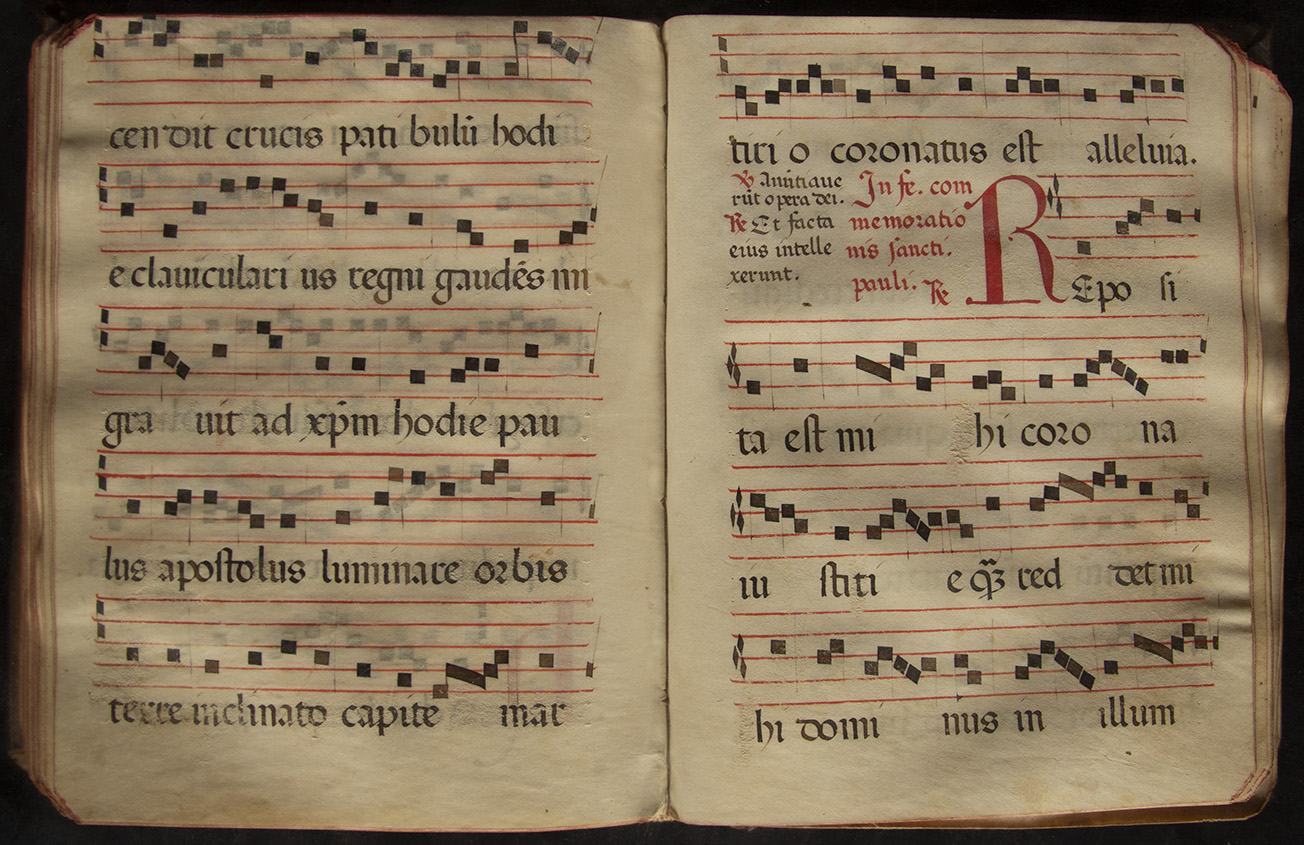 cen dit crucis pati bulū hodi
e clauiculari us regni gaudēs mi
gra uit ad xp̄m hodie pau
lus apostolus luminare orbis
terre inclinato capite mar
tiri o coronatus est alleluia.
℣ Anūtiaue
rūt opera dei.
℟ Et facta
eius intelle
xerunt.
In fe. com
memoratio
nis sancti.
pauli. ℟
REpo si
ta est mi hi coro na
iu stiti e qꝫ red det mi
hi domi nus in illum